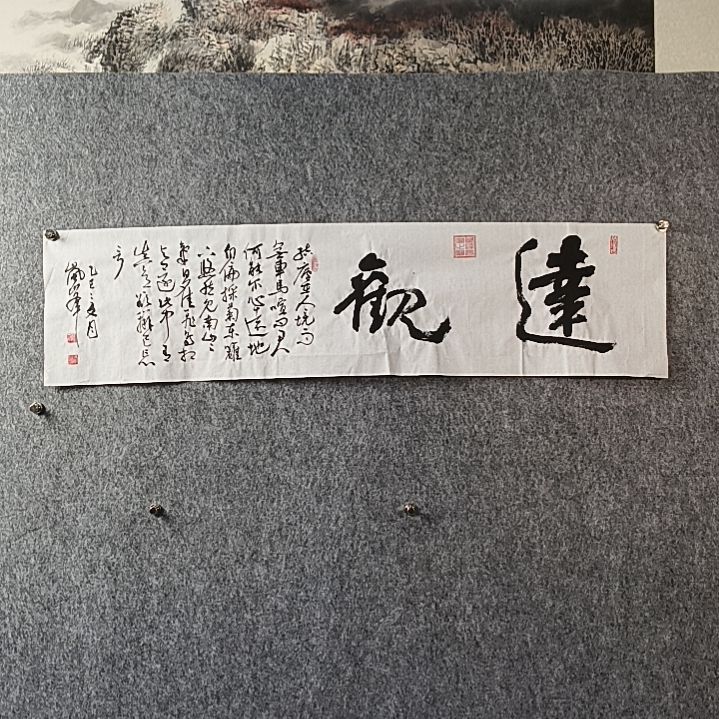 達觀
結廬在人境而
無車馬喧問君
何能尔心遠地
自偏採菊東籬
下悠然見南山〻
氣日夕佳飛鳥相
与還此中有
真意欲辯已忘
言
乙巳之夏月